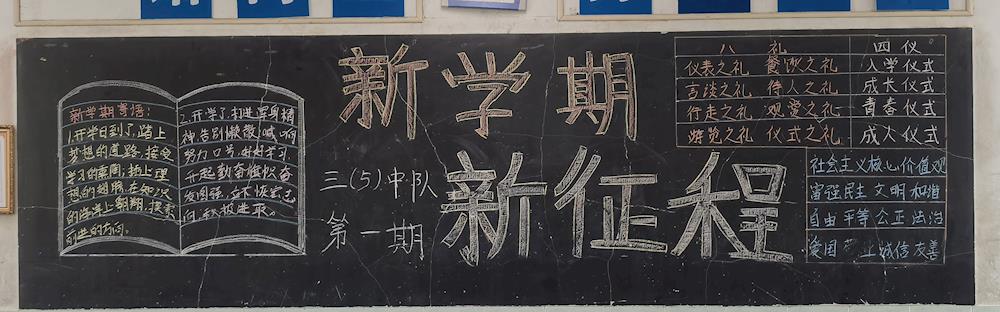 新学期寄语:
1.开学日到了,踏上
梦想的道路,接受
学习的熏陶,插上理
想的翅膀,在知识
的海洋上翱翔,探索
前进的方向。
2.开学了,打造浑身精
神,告别懒散,喊响
努力口号,好好学习
开起勤奋
发图强
积极进取。
新学期
三(5)中队
第一期
新征程
八礼 四仪
仪表之礼 餐饮之礼 入学仪式
言谈之礼 待人之礼 成长仪式
行走之礼 观赏之礼 青春仪式
游览之礼 仪式之礼 成人仪式
社会主义核心价值观
富强民主文明和谐
自由平等公正法治
爱国 业诚信友善